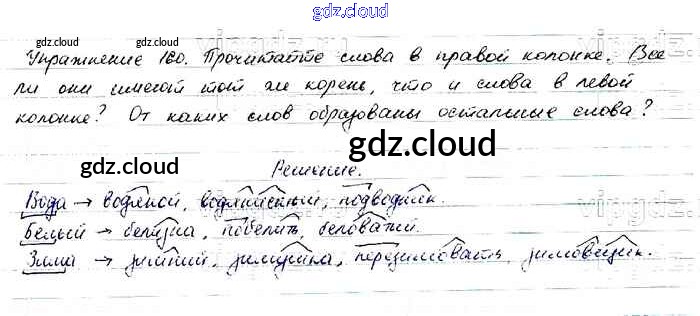 gdz.cloud
gdz.cloud gdz.cloud
Упражнение 160. Прочитайте слова в правой колонке. Все
ли они имеют тот же корень, что и слова в левой
колонке? От каких слов образованы остальные слова?
gdz.cloud
gdz.cloud
Решение.
Вода → водяной, водянистый, подводник.
Белый → белизна, побелить, беловатый.
Зима → зимний, зимушка, перезимовать, зимовщик.
gdz.cloud gdz.cloud